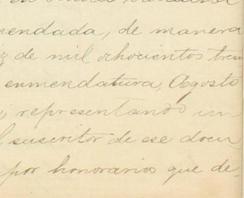 endada, de manera
z de mil ochocientos trein
enmendatura, Agosto
, representando un
l suscritor de ese docu
por honorarios que de